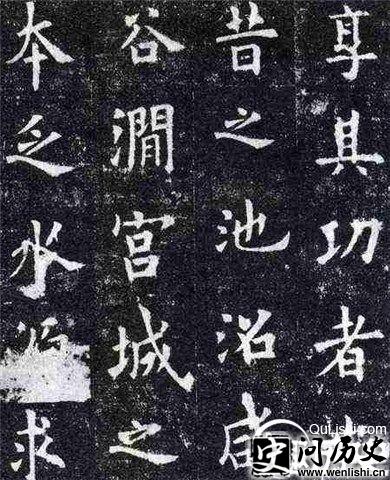 享其功者
昔之池沼咸
谷澗宮城之
本乏水源求
问历史
www.wenlishi.cn